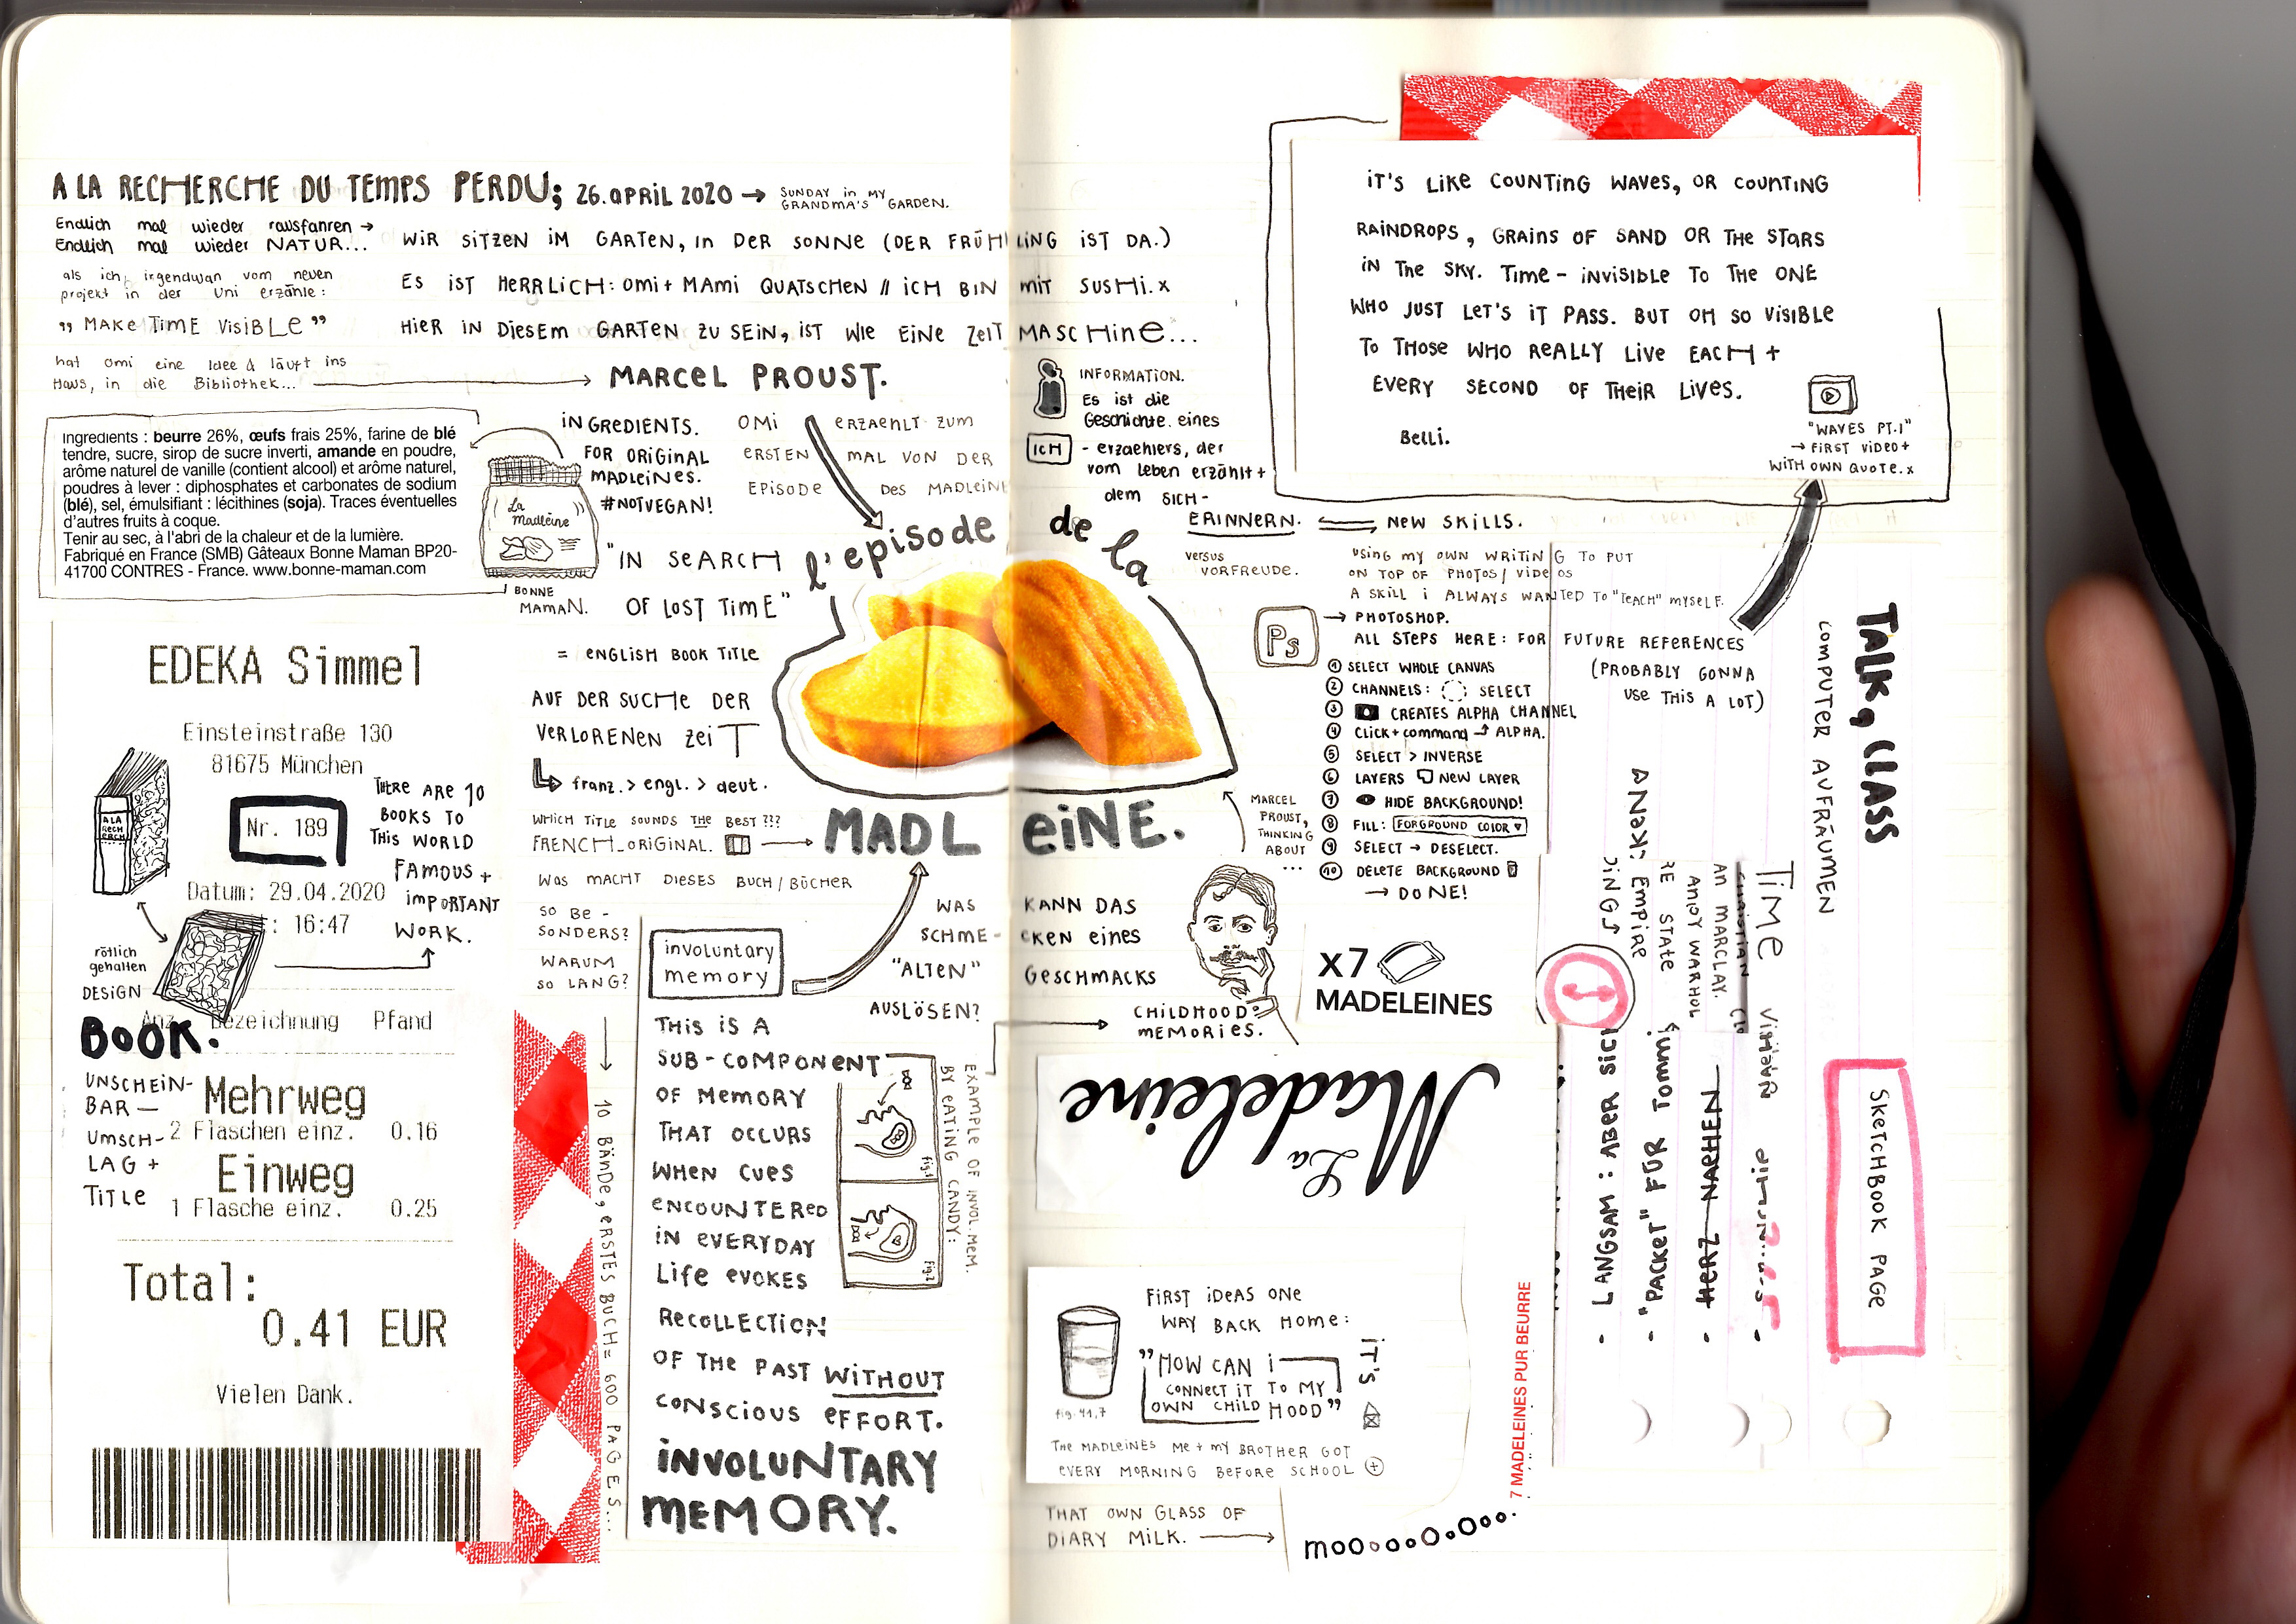 A LA RECHERCHE DU TEMPS PERDU; 26. APRIL 2020 →
SUNDAY in MY
GRANDMA'S GARDEN.
Endlich mal wieder rausfahren →
Endlich mal wieder NATUR...
WIR SITZEN IM GARTEN, IN DER SONNE (DER FRÜHLING IST DA.)
als ich irgendwan vom neuen
projekt in der Uni erzähle:
ES IST HERRLICH: OMI + MAMI QUATSCHEN // ICH BIN MIT SUSHI.X
„ MAKE TIME VISIBLE ”
HIER IN DIESEM GARTEN ZU SEIN, IST WIE EINE ZEITMASCHINE...
hat omi eine Idee & läuft ins
Haus, in die Bibliothek...
MARCEL PROUST.
Ingrédients : beurre 26%, œufs frais 25%, farine de blé
tendre, sucre, sirop de sucre inverti, amande en poudre,
arôme naturel de vanille (contient alcool) et arôme naturel,
poudres à lever : diphosphates et carbonates de sodium
(blé), sel, émulsifiant : lécithines (soja). Traces éventuelles
d'autres fruits à coque.
Tenir au sec, à l'abri de la chaleur et de la lumière.
Fabriqué en France (SMB) Gâteaux Bonne Maman BP20-
41700 CONTRES - France. www.bonne-maman.com
INGREDIENTS.
FOR ORIGINAL
MADLEINES.
#NOTVEGAN!
La
Madleine
BONNE
MAMAN.
OMI ERZAEHLT ZUM
ERSTEN MAL VON DER
EPISODE DES MADLEINE
"IN SEARCH
OF LOST TIME"
= ENGLISH BOOK TITLE
AUF DER SUCHE DER
VERLORENEN ZEIT
franz. > engl. > deut.
WHICH TITLE SOUNDS THE BEST???
FRENCH_ORIGINAL.
l'episode de la
MADLEINE.
WAS MACHT DIESES BUCH/BÜCHER
SO BE-
SONDERS?
WARUM
SO LANG?
10 BÄNDE, ERSTES BUCH = 600 PAGES...
EDEKA Simmel
Einsteinstraße 130
81675 München
Nr. 189
Datum: 29.04.2020
: 16:47
A LA
RECH
ERCH
THERE ARE 10
BOOKS TO
THIS WORLD
FAMOUS +
IMPORTANT
WORK.
rötlich
gehalten
DESIGN
Anz Bezeichnung Pfand
BOOK.
UNSCHEIN-
BAR —
UMSCH-
LAG +
TITLE
Mehrweg
2 Flaschen einz. 0.16
Einweg
1 Flasche einz. 0.25
Total:
0.41 EUR
Vielen Dank.
involuntary
memory
THIS IS A
SUB-COMPONENT
OF MEMORY
THAT OCCURS
WHEN CUES
ENCOUNTERED
IN EVERYDAY
LIFE EVOKES
RECOLLECTION
OF THE PAST WITHOUT
CONSCIOUS EFFORT.
INVOLUNTARY
MEMORY.
fig.1
fig.2
EXAMPLE OF INVOL. MEM.
BY EATING CANDY:
WAS KANN DAS
SCHMECKEN EINES
"ALTEN" GESCHMACKS
AUSLÖSEN?
CHILDHOOD
MEMORIES.
MARCEL
PROUST,
THINKING
ABOUT
...
INFORMATION.
Es ist die
Geschichte eines
ICH - erzaehlers, der
vom leben erzählt +
dem SICH-
ERINNERN.
versus
VORFREUDE.
NEW SKILLS.
USING MY OWN WRITING TO PUT
ON TOP OF PHOTOS/VIDEOS
A SKILL I ALWAYS WANTED TO "TEACH" MYSELF.
Ps
→ PHOTOSHOP.
ALL STEPS HERE: FOR FUTURE REFERENCES
(PROBABLY GONNA
USE THIS A LOT)
① SELECT WHOLE CANVAS
② CHANNELS: SELECT
③ CREATES ALPHA CHANNEL
④ CLICK + COMMAND ALPHA.
⑤ SELECT > INVERSE
⑥ LAYERS NEW LAYER
⑦ HIDE BACKGROUND!
⑧ FILL: FORGROUND COLOR ▼
⑨ SELECT → DESELECT.
⑩ DELETE BACKGROUND
→ DONE!
IT'S LIKE COUNTING WAVES, OR COUNTING
RAINDROPS, GRAINS OF SAND OR THE STARS
IN THE SKY. TIME - INVISIBLE TO THE ONE
WHO JUST LET'S IT PASS. BUT OH SO VISIBLE
TO THOSE WHO REALLY LIVE EACH +
EVERY SECOND OF THEIR LIVES.
Belli.
"WAVES PT.1"
→ FIRST VIDEO +
WITH OWN QUOTE.X
x7
MADELEINES
La
Madeleine
FIRST IDEAS ONE
WAY BACK HOME:
„HOW CAN I
CONNECT IT TO MY
OWN CHILDHOOD”
IT'S
fig. 41,7
THE MADLEINES ME + MY BROTHER GOT
EVERY MORNING BEFORE SCHOOL
THAT OWN GLASS OF
DIARY MILK.
MOOOOOOOOOO..
7 MADELEINES PUR BEURRE
TALK, CLASS
COMPUTER AUFRÄUMEN
SKETCHBOOK PAGE
TIME VISIBLE
AN MARCLAY.
ANDY WARHOL
STATE
EMPIRE
HERZ NAEHEN
"PACKET" FÜR TOMMI
LANGSAM : ABER SICH